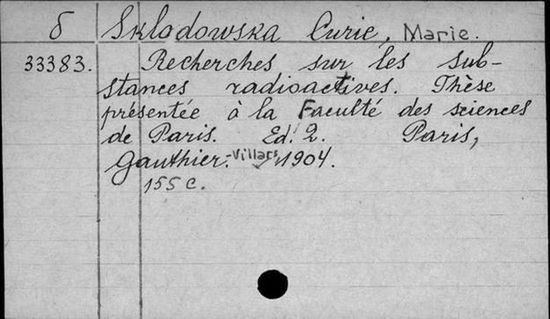 δ Sklodowska Curie, Marie.
33383. Recherches sur les sub-
stances radioactives. Thèse
présentée à la Faculté des sciences
de Paris. Ed. 2. Paris,
Gauthier-Villars, 1904.
155 c.